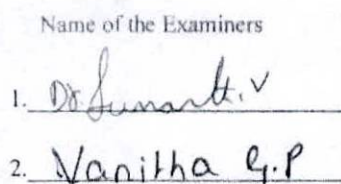 Name of the Examiners
1. Dr. Sumanth.V
2. Vanitha G.P